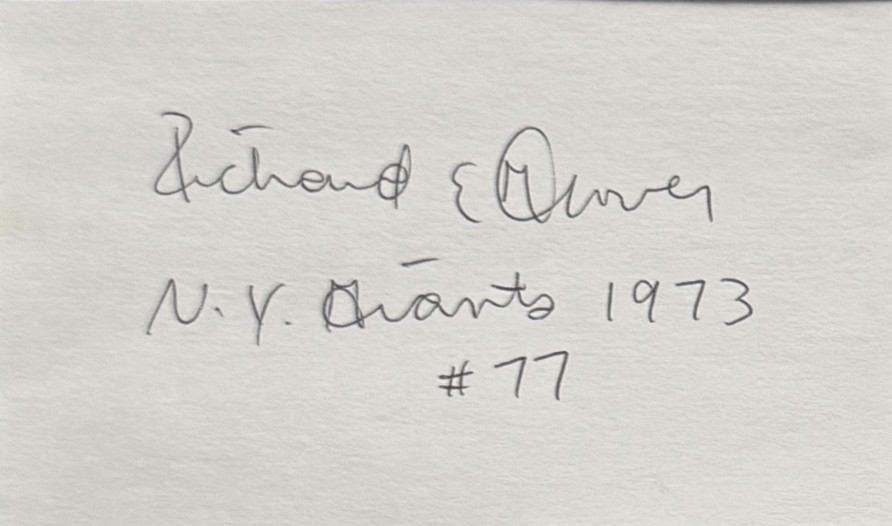 Richard E Glover
N.Y. Giants 1973
#77